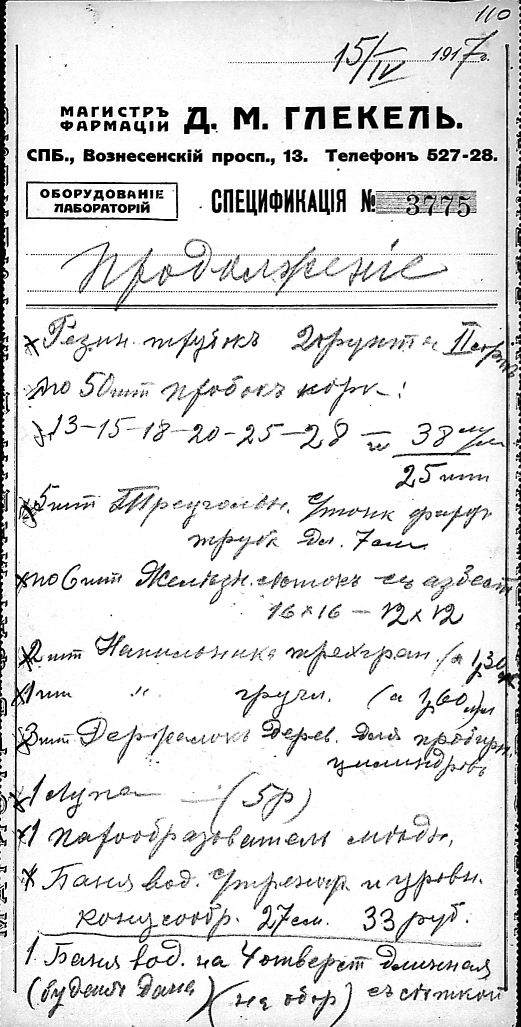 110
15/IV 1917 г.
МАГИСТРЪ
ФАРМАЦІИ
Д. М. ГЛЕКЕЛЬ.
СПБ., Вознесенскій просп., 13. Телефонъ 527-28.
ОБОРУДОВАНІЕ
ЛАБОРАТОРІЙ
СПЕЦИФИКАЦІЯ № 3775
Продолженіе
Резин. трубокъ 2 фунта II сорт
по 50 шт пробокъ корк:
13-15-18-20-25-28 38 м/м
25 шт
5 шт Треугольн. фарф
трубк дл. 7 см
по 6 шт Желѣзн. сѣтокъ съ азбест
16×16 – 12×12
2 шт Напильника трехгран. (а 1,30
1 шт " кругл. (а 1,60
3 шт Держалокъ дерев. для пробирн.
цилиндровъ
1 Лупа (5 р)
1 парообразователь мѣдн.
Баня вод. и уровн.
27 см. 33 руб.
1 Баня вод. на 4 отверст длинная
(будетъ дана) (на обор) съ сѣткой